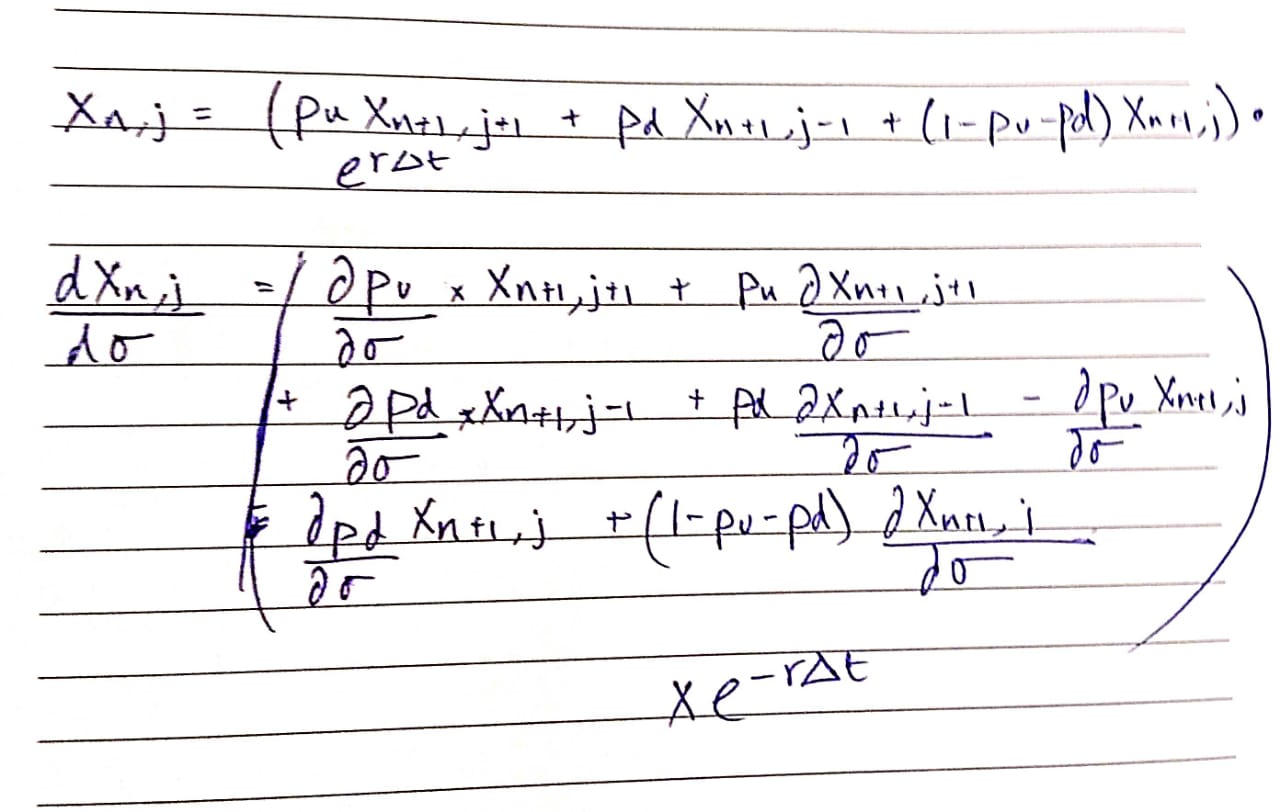 Xn,j = (pu Xn+1,j+1 + pd Xn+1,j-1 + (1-pu-pd) Xn+1,j) •
erΔt
dXn,j/dσ = ( ∂pu/∂σ x Xn+1,j+1 + pu ∂Xn+1,j+1/∂σ
+ ∂pd/∂σ x Xn+1,j-1 + pd ∂Xn+1,j-1/∂σ - ∂pu/∂σ Xn+1,j
∂pd/∂σ Xn+1,j + (1-pu-pd) ∂Xn+1,j/∂σ )
x e-rΔt